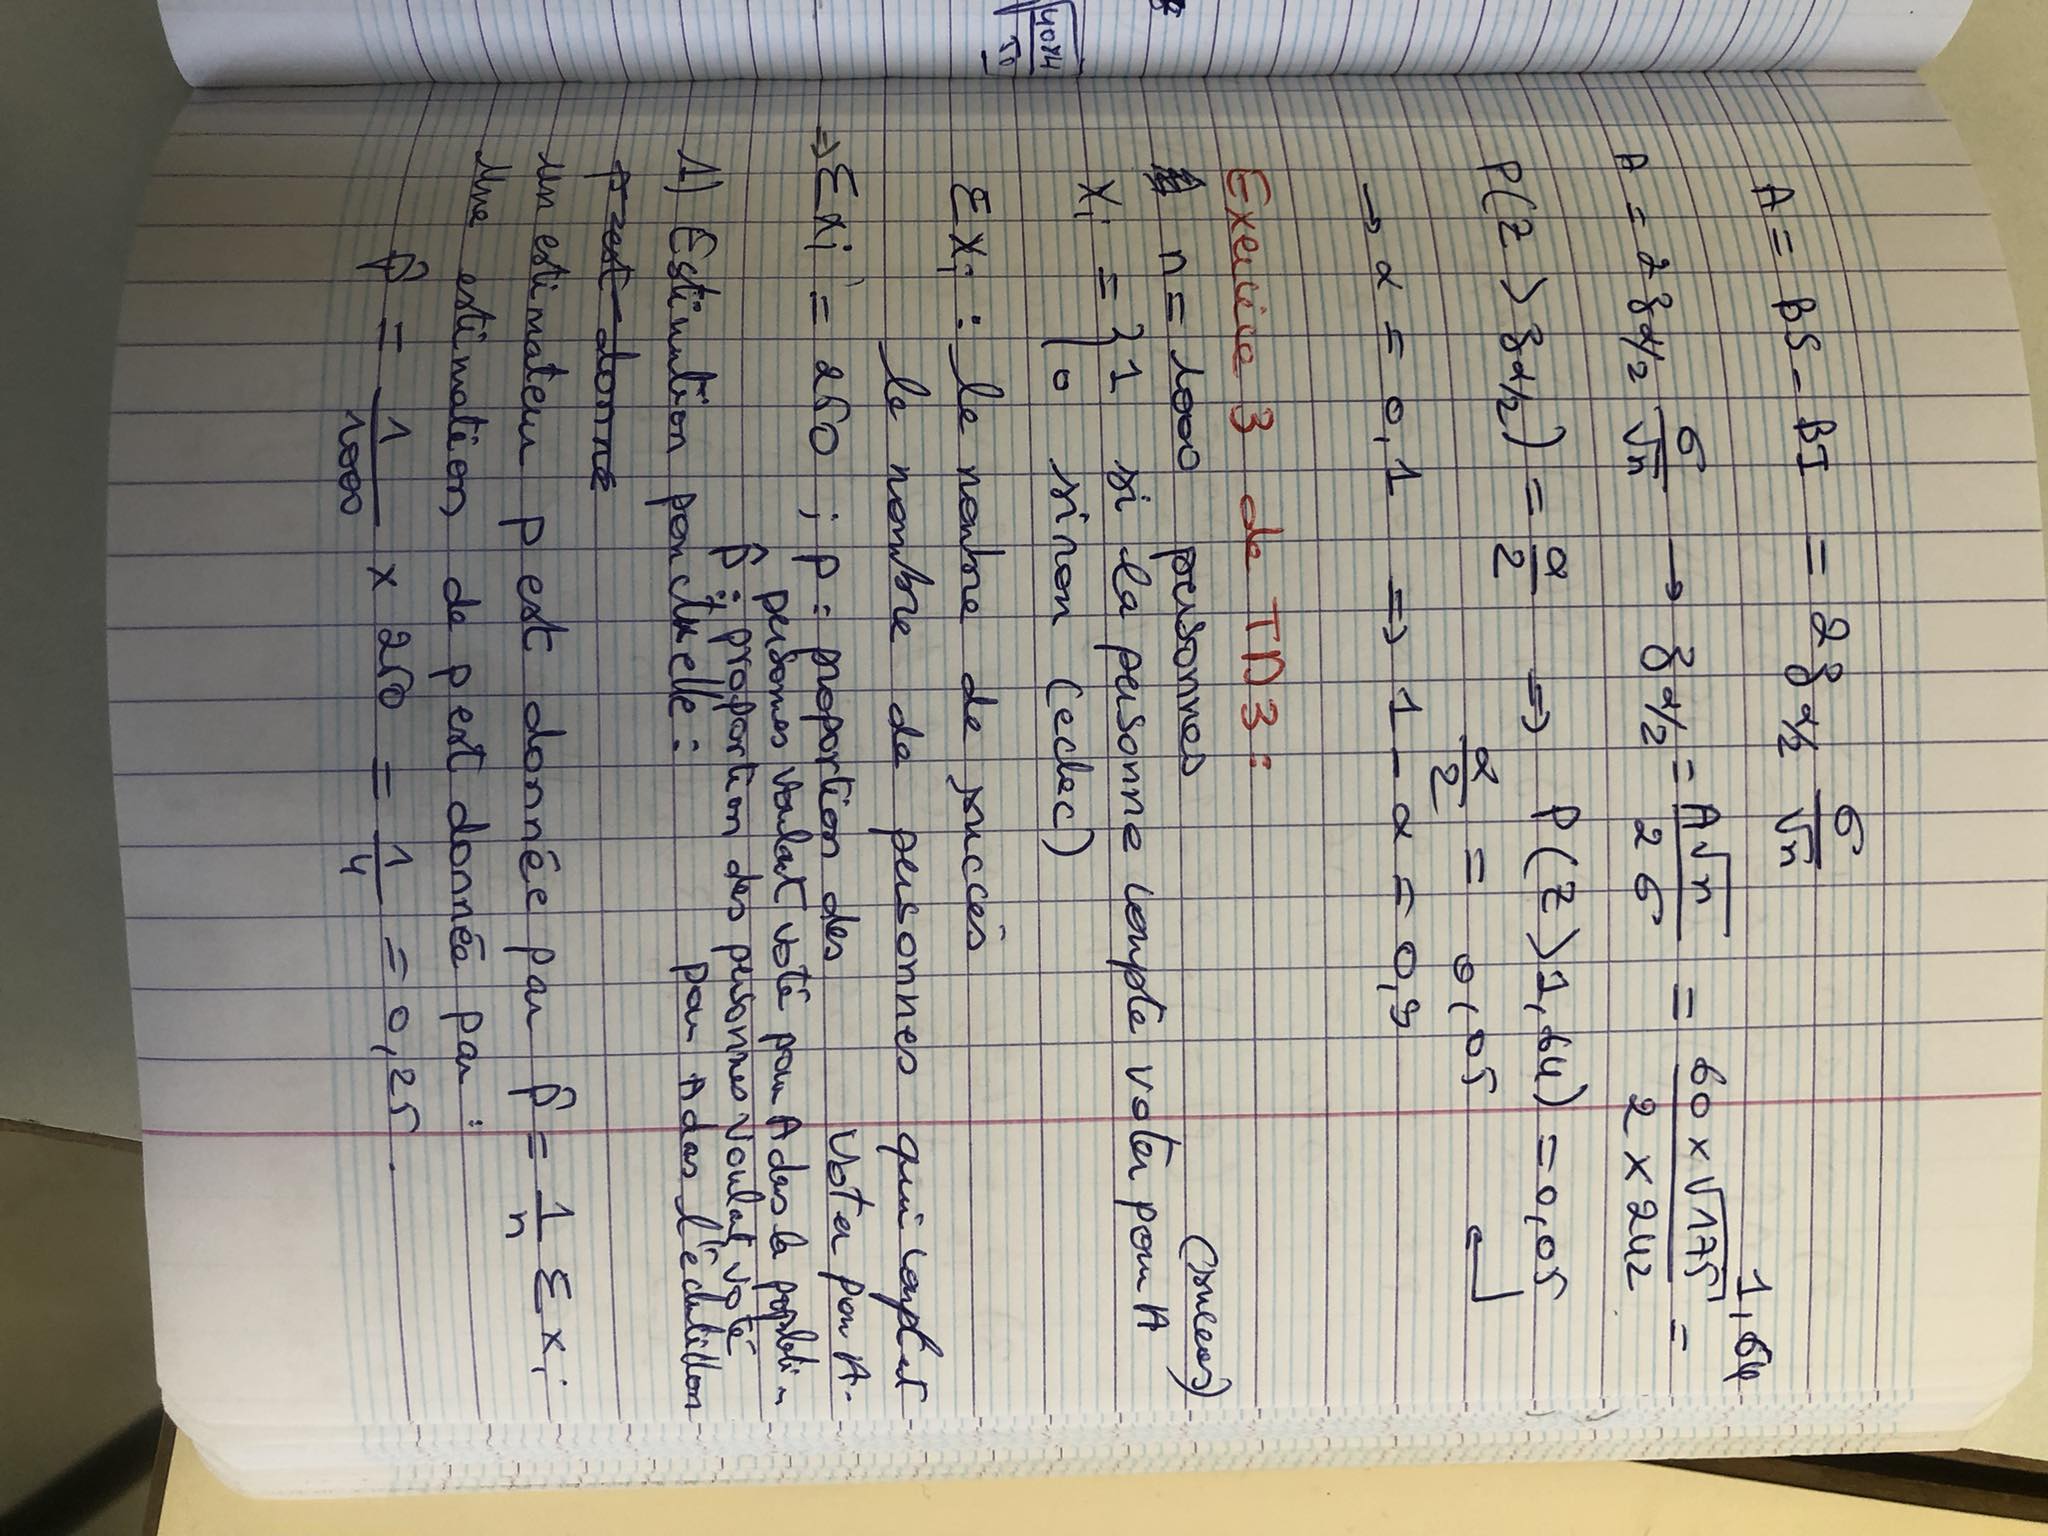 A = BS - BI = 2 z α/2 σ/√n
A = 2 z α/2 σ/√n → z α/2 = A√n / 2σ = 60 × √175 / 2 × 242 = 1,64
P(Z > z α/2) = α/2 ⇒ P(Z > 1,64) = 0,05
α/2 = 0,05 ↵
→ α = 0,1 ⇒ 1 - α = 0,9
Exercice 3 de TD3 :
n = 1000 personnes
Xi = { 1 si la personne compte voter pour A (succes)
0 sinon (echec)
Σxi : le nombre de succès
le nombre de personnes qui comptet
voter pour A.
⇒ Σxi = 250 ; p = proportion des
personnes voulant voté pour A das la populati n
p̂ : proportion des personnes voulat voté
pour A das l'échatillon
1) Estimation ponctuelle :
p est donné
un estimateur p est donnée par p̂ = 1/n Σ xi
Une estimation de p est donnée par :
p̂ = 1/1000 × 250 = 1/4 = 0,25.
√4084/50